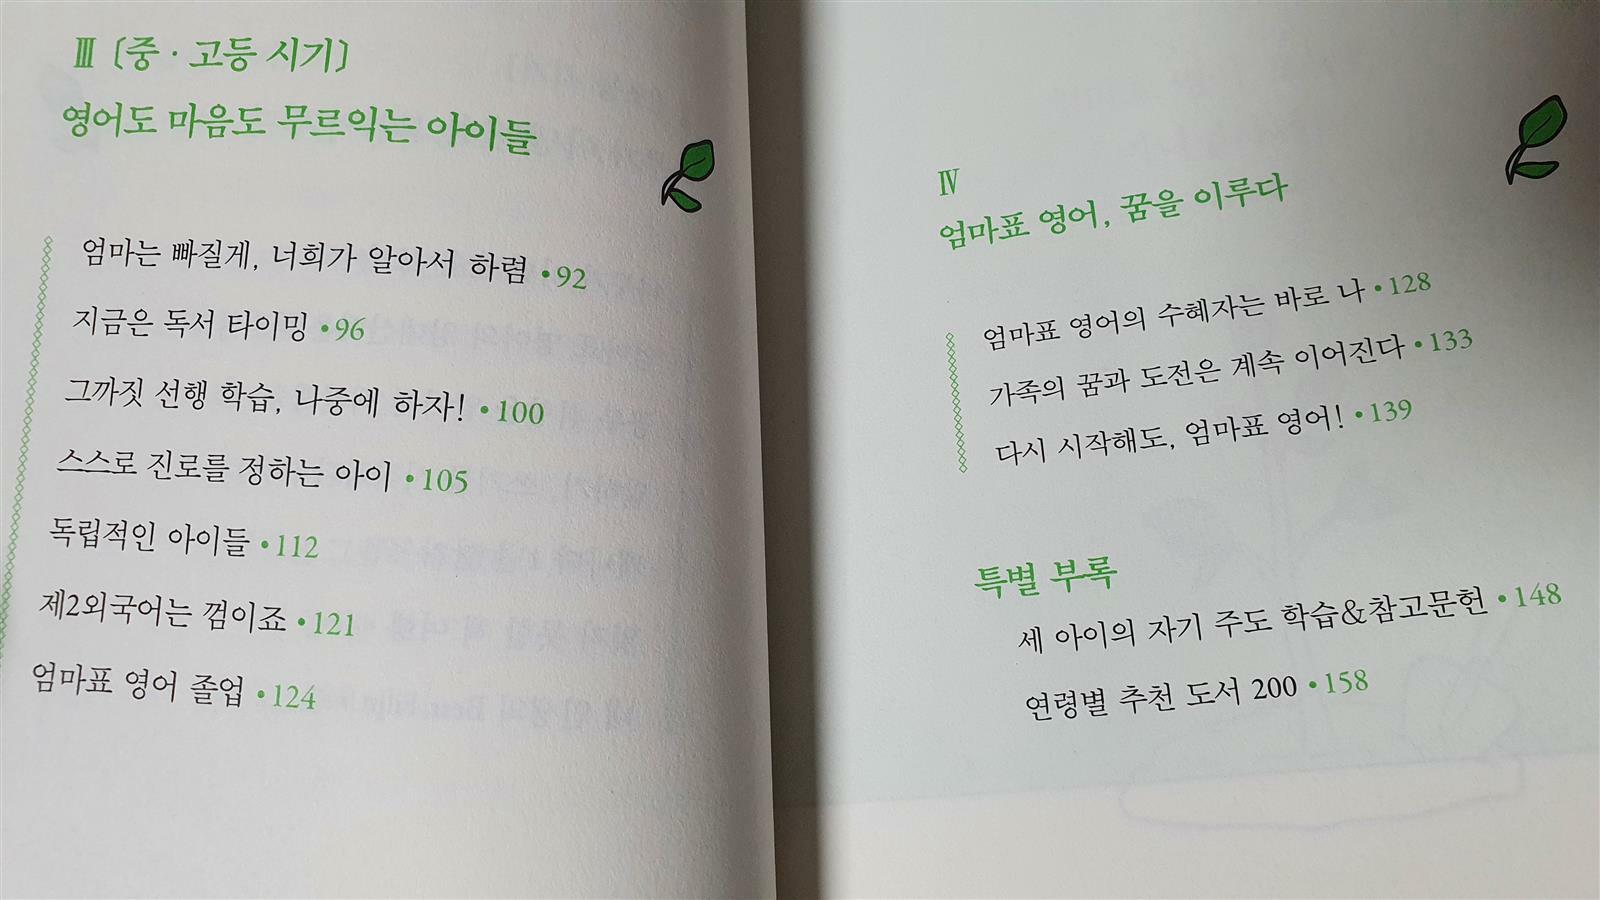 Ⅲ [중·고등 시기]
영어도 마음도 무르익는 아이들
엄마는 빠질게, 너희가 알아서 하렴 •92
지금은 독서 타이밍 •96
그까짓 선행 학습, 나중에 하자! •100
스스로 진로를 정하는 아이 •105
독립적인 아이들 •112
제2외국어는 껌이죠 •121
엄마표 영어 졸업 •124
Ⅳ
엄마표 영어, 꿈을 이루다
엄마표 영어의 수혜자는 바로 나 •128
가족의 꿈과 도전은 계속 이어진다 •133
다시 시작해도, 엄마표 영어! •139
특별 부록
세 아이의 자기 주도 학습&참고문헌 •148
연령별 추천 도서 200 •158